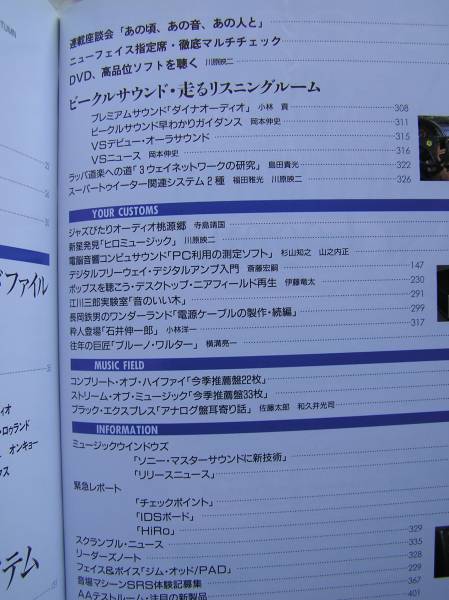 TUMN
連載座談会「あの頃、あの音、あの人と」
ニューフェイス指定席・徹底マルチチェック
DVD、高品位ソフトを聴く 川原映二
ビークルサウンド・走るリスニングルーム
プレミアムサウンド「ダイナオーディオ」 小林 貢 308
ビークルサウンド早わかりガイダンス 岡本伸史 311
VSデビュー・オーラサウンド 315
VSニュース 岡本伸史 316
ラッパ道楽への道「3ウェイネットワークの研究」 島田貴光 322
スーパートゥイーター関連システム2種 福田雅光 川原映二 326
YOUR CUSTOMS
ジャズぴたりオーディオ桃源郷 寺島靖国
新星発見「ヒロミュージック」 川原映二
電脳音響コンピュサウンド「PC利用の測定ソフト」 杉山知之 山之内正
デジタルフリーウェイ・デジタルアンプ入門 斎藤宏嗣 147
ポップスを聴こう・デスクトップ・ニアフィールド再生 伊藤竜太 230
江川三郎実験室「音のいい木」 291
長岡鉄男のワンダーランド「電源ケーブルの製作・続編」 299
粋人登場「石井伸一郎」 小林洋一 317
往年の巨匠「ブルーノ・ワルター」 横溝亮一
MUSIC FIELD
コンプリート・オブ・ハイファイ「今季推薦盤22枚」
ストリーム・オブ・ミュージック「今季推薦盤33枚」
ブラック・エクスプレス「アナログ盤耳寄り話」 佐藤太郎 和久井光司
INFORMATION
ミュージックウインドウズ
「ソニー・マスターサウンドに新技術」
「リリースニュース」
緊急レポート
「チェックポイント」
「IDSボード」
「HiRo」 329
スクランブル・ニュース 335
リーダーズノート 328
フェイス&ボイス「ジム・オッド/PAD」 229
音場マシーンSRS体験記募集 367
AAテストルーム・注目の新製品 401
ドファイル
ィオ
・ローランド
オンキョー
クス
テム